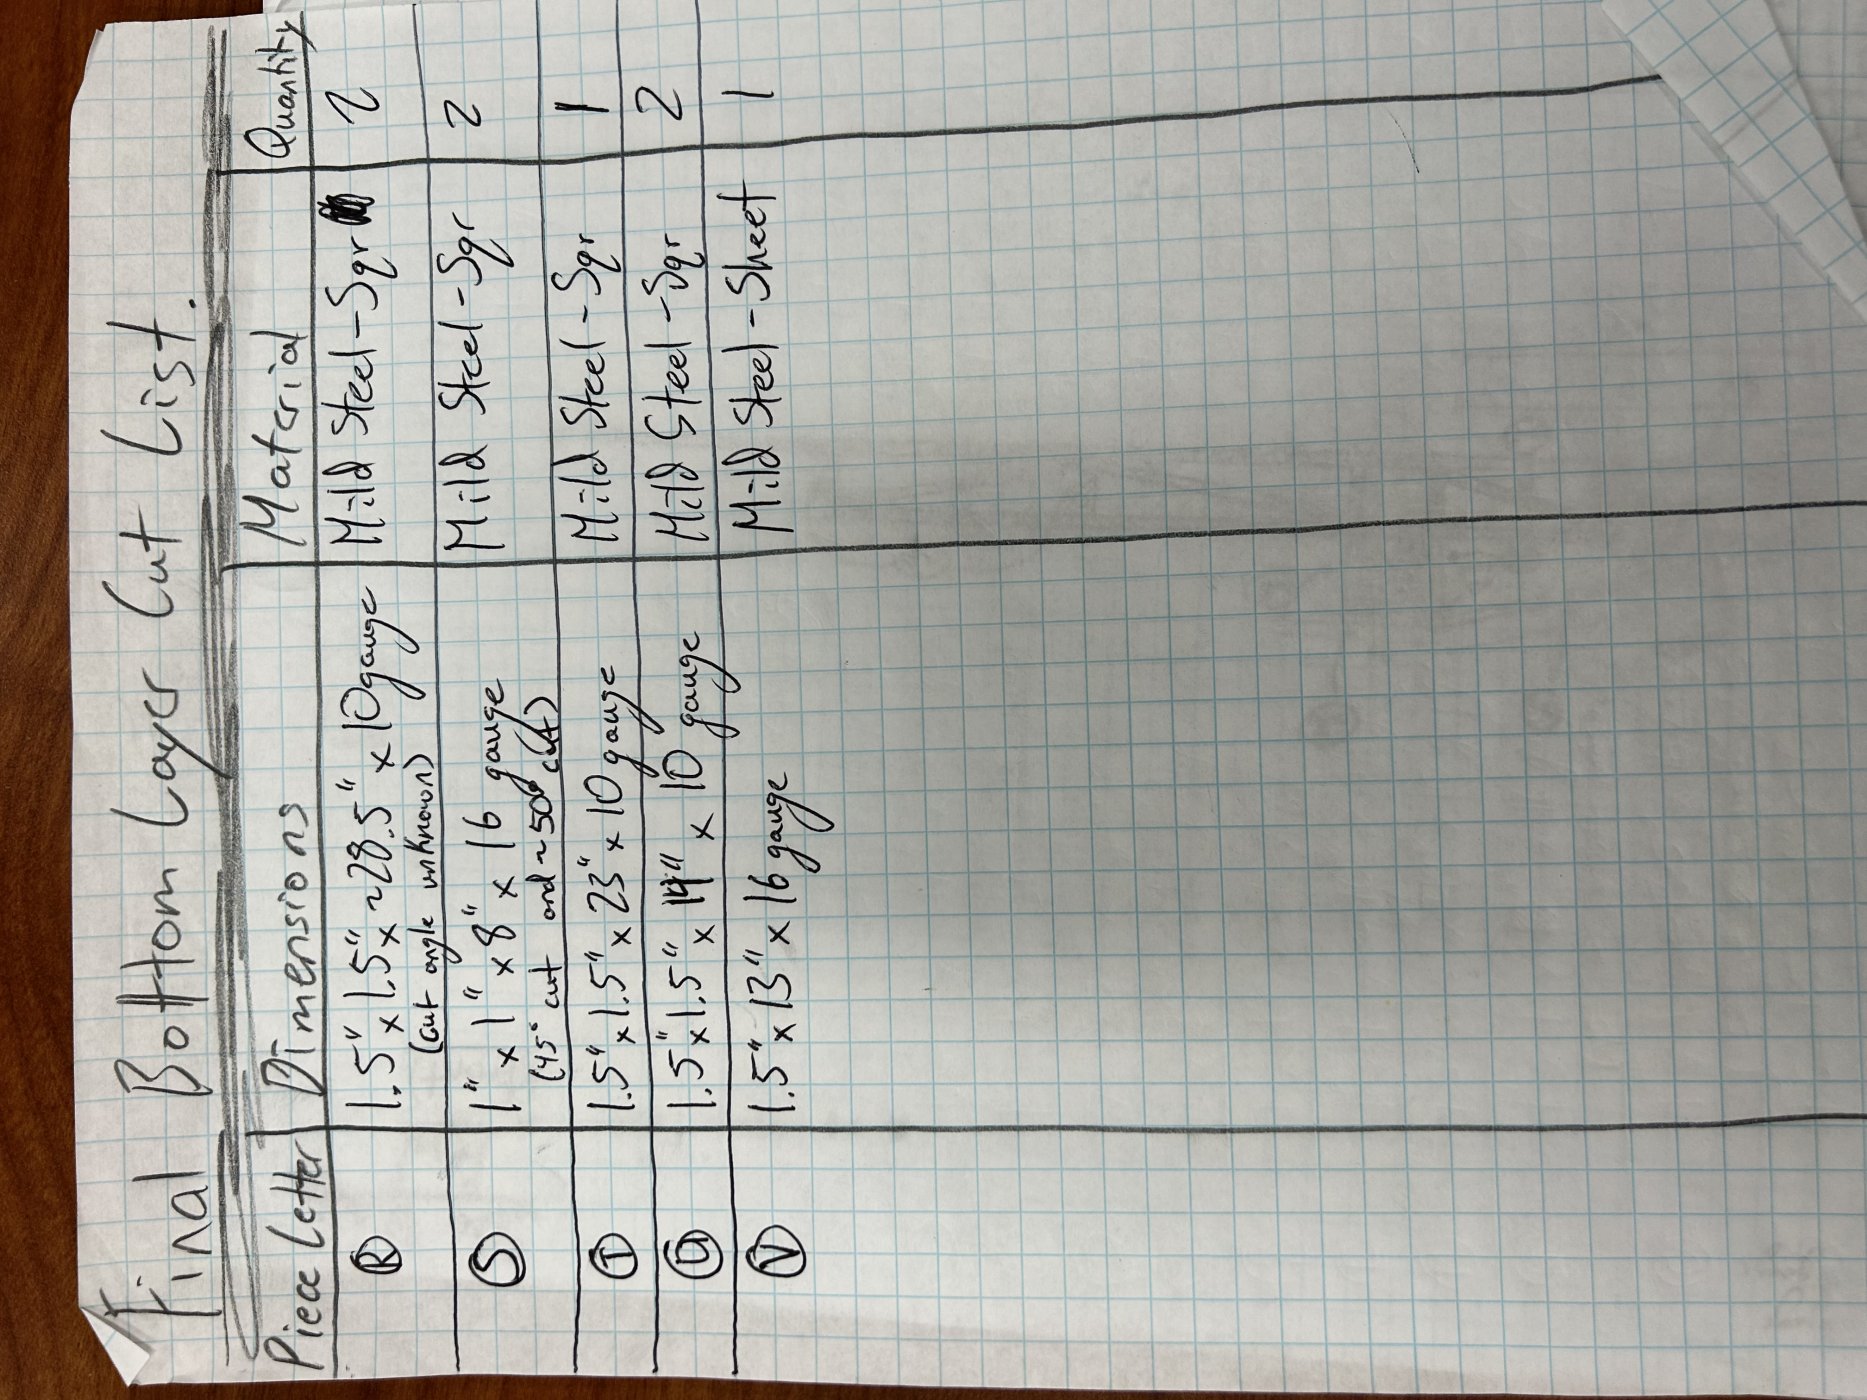 Final Bottom Layer Cut List.
Piece Letter Dimensions Material Quantity
R 1.5" x 1.5" x ~28.5" x 10 gauge Mild Steel - Sqr 2
(cut angle unknown)
S 1" x 1" x 8" x 16 gauge Mild Steel - Sqr 2
(45° cut and ~50° cut)
T 1.5" x 1.5" x 23" x 10 gauge Mild Steel - Sqr 1
U 1.5" x 1.5" x 14" x 10 gauge Mild Steel - Sqr 2
V 1.5" x 13" x 16 gauge Mild Steel - Sheet 1